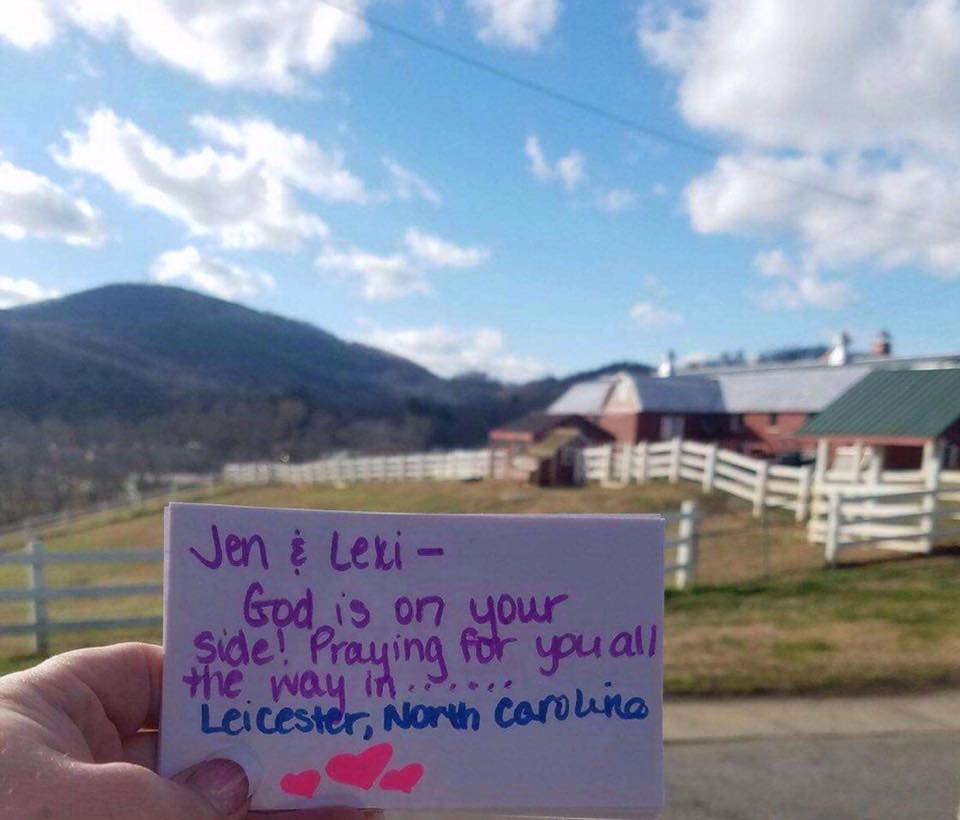 Jen & Lexi -
God is on your
side! Praying for you all
the way in.......
Leicester, North Carolina